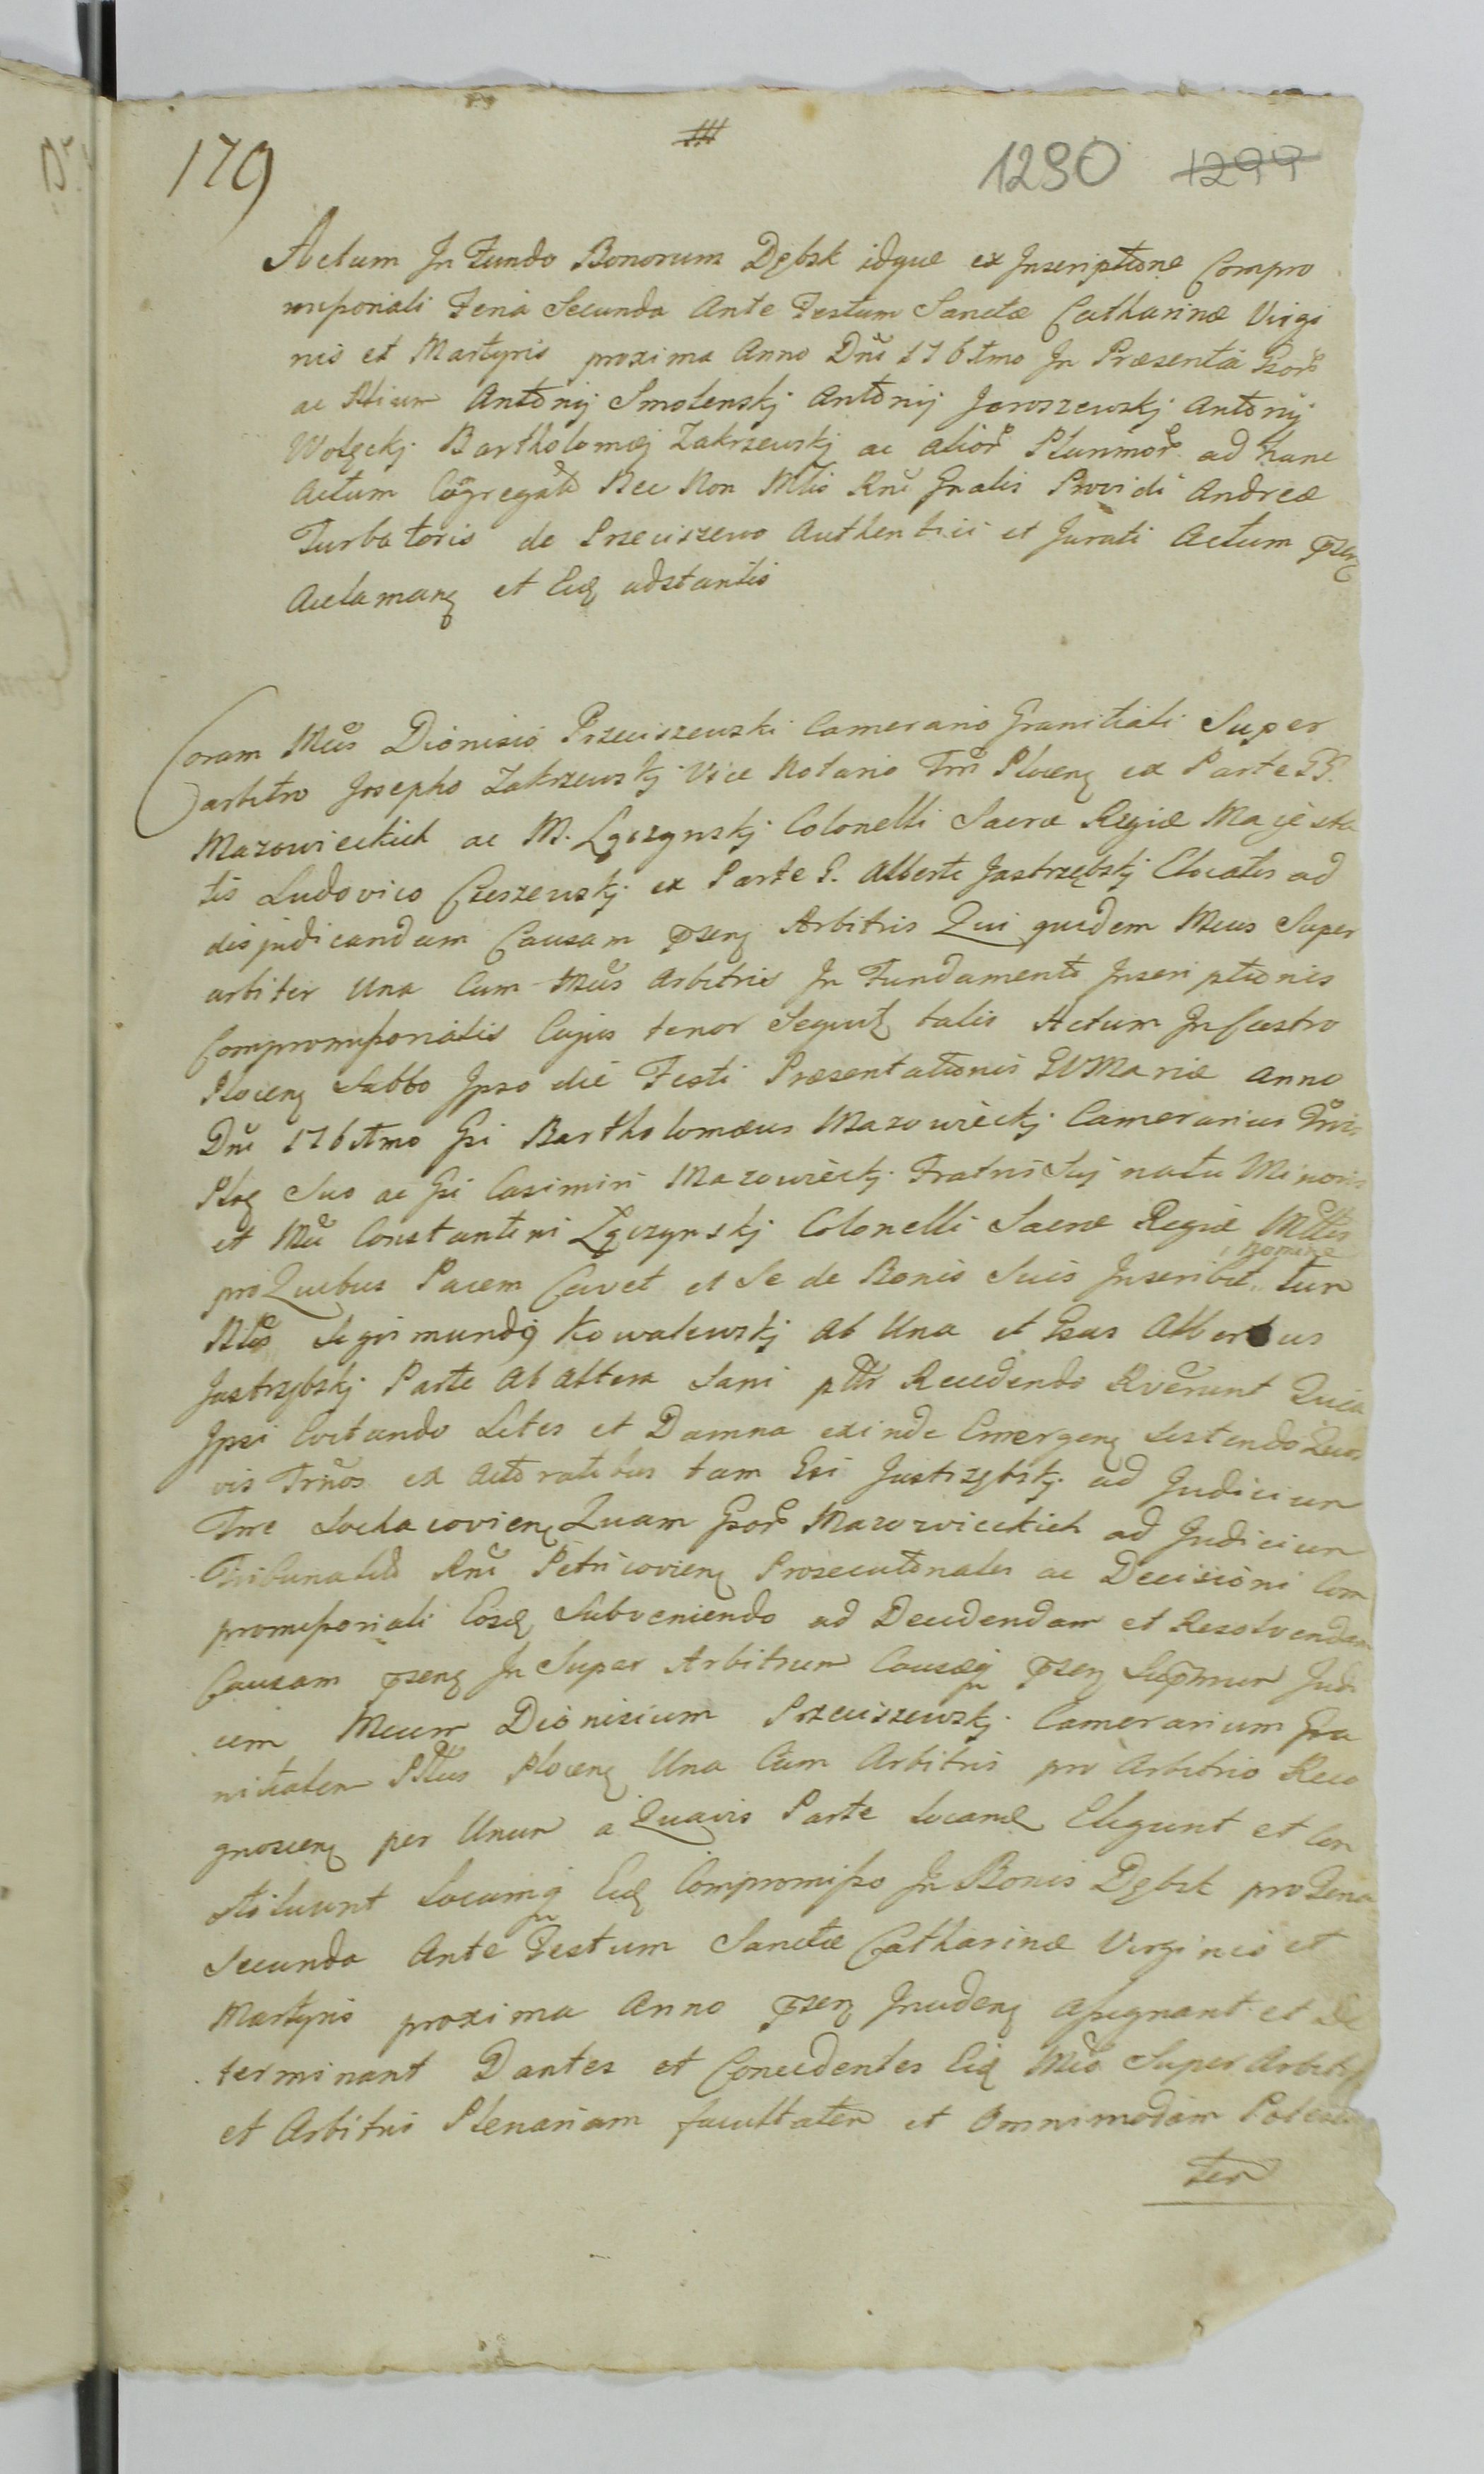 179
1290 1299
Actum In Fundo Bonorum Dębsk idque ex Inscriptione Compro
missoriali Feria Secunda Ante Festum Sanctæ Catharinæ Virgi
nis et Martyris proxima Anno Dni In Præsentia
ac Antonij Smolenskj Antonij Jaroszewskj Antonij
Wolęckj Bartholomæj Zakrzewskj ac alior Plurimor ad hanc
Actum Congregat Nec Non Mtis Rni Gnalis Providi Andreæ
Turbatoris de Przeciszewo Authentici et Jurati Actum
Acclamanę et Eidę adstantis
Coram Mcis Dionisio Przeciszewski Camerario Granitiali Super
arbitro Josepho Zakrzewskj Vice Notario Trri Plocenę ex Parte GG.
Mazowieckich ac M. Lączynskj Colonelli Sacræ Regiæ Majesta
tis Ludovico Czeszewskj ex Parte G. Alberti Jastrzębskj Elocatis ad
disjudicandam Causam pzenę Arbitris Qui quidem Mcus Super
arbiter Una Cum Mcis Arbitris In Fundamento Inscriptionis
Compromissorialis Cujus tenor Sequitę talis Actum In Castro
Plocenę Sabbo Ipso die Festi Præsentationis BVMariæ Anno
Dni Gsi Bartholomæus Mazowieckj Camerarius
Suo ac Gsi Casimiri Mazowieckj Fratris Sui natu Minoris
et Mci Constantini Lączynskj Colonelli Sacræ Regiæ Mttis
pro Quibus Pacem Cavet et Se de Bonis Suis Inscribit nomine tum
Sigismundę Kowalewskj Ab Una et Gsus Albertus
Jastrzębskj Parte Ab Altera Sani Recedendo Quia
Ipsi Evitando Lites et Damna exinde Emergenę Sistendo Quos
vis Trnos ex Actoratibus tam Gsi Jastrzębskj ad Judicium
Trre Sochacovienę Quam Gsor Mazowieckich ad Judicium
Tribunalis Rni Petricovienę Prosecutionales ac Decisioni Com
promissoriali Eosdę Subveniendo ad Decidendam et Resolvendam
Causam pzenę In Super Arbitrum Causæq pzenę Supremum Judi
cem Mcum Dionisium Przeciszewskj Camerarium Gra
nitialem Plttus Plocenę Una Cum Arbitris pro Arbitrio Reco
gnoscenę per Unum a Quavis Parte Locandę Eligunt et Con
stituunt Locumq Eidę Compromisso In Bonis Dębsk pro Feria
Secunda Ante Festum Sanctæ Catharinæ Virginis et
Martyris proxima Anno pzenę Incidenę Assignant et De
terminant Dantes et Concedentes Eidę Mcis Super Arbitro
et Arbitris Plenariam facultatem et Omnimodam Potesta
tem